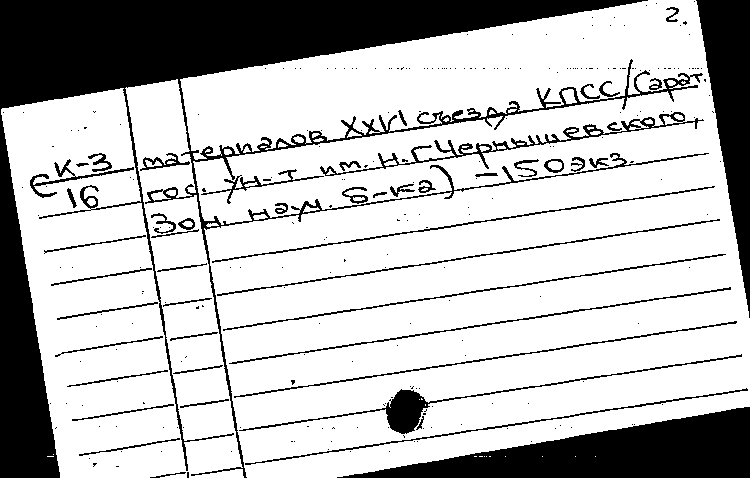 2.
Є К-3
16
материалов XXVI съезда КПСС/Сарат.
гос. ун-т им. Н.Г.Чернышевского,
Зон. науч. б-ка) -150экз.